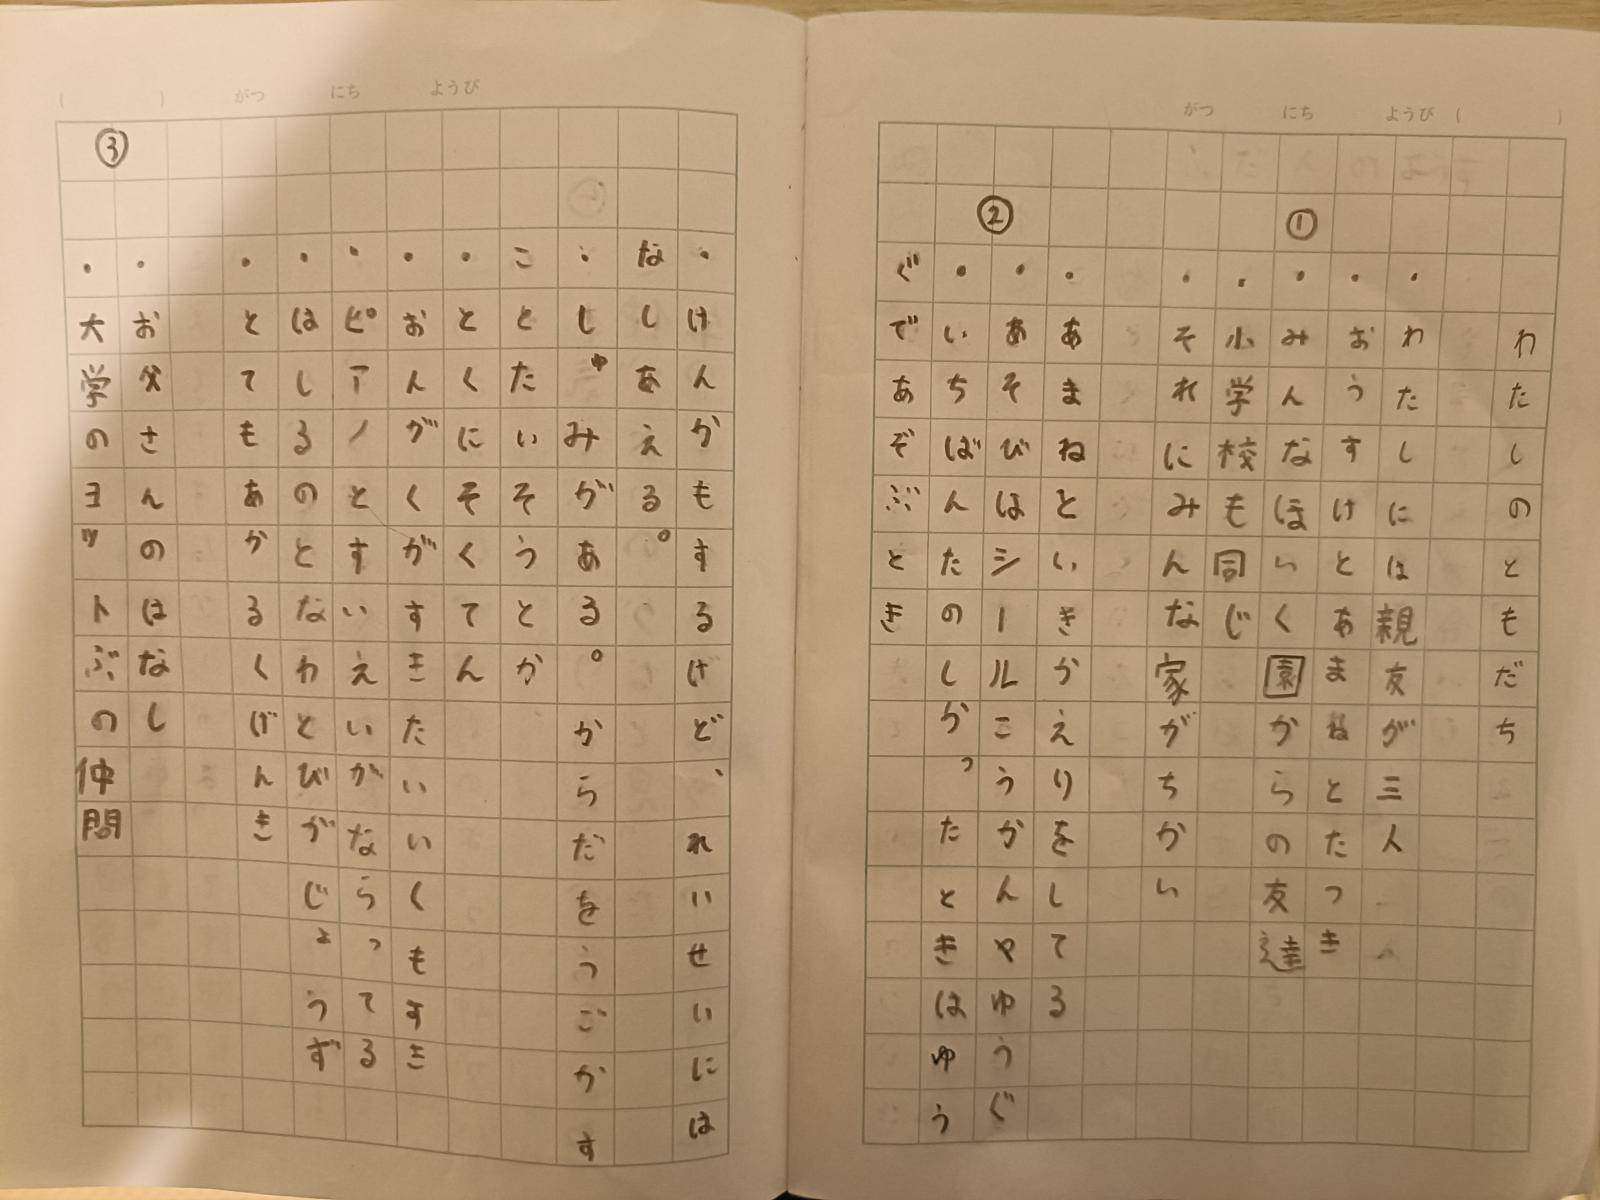 がつ にち ようび ( )
わたしのともだち
・わたしには親友が三人
・おうすけとあまねとたつき
①・みんなほいく園からの友達
・小学校も同じ
・それにみんな家がちかい
・あまねといきかえりをしてる
②・あそびはシールこうかんやゆうぐ
・いちばんたのしかったときはゆう
ぐであそぶとき
( ) がつ にち ようび
・けんかもするけど、れいせいには
なしあえる。
・しゅみがある。からだをうごかす
ことたいそうとか
・とくにそくてん
・おんがくがすきたいいくもすき
・ピアノとすいえいがならってる
・はしるのとなわとびがじょうず
・とてもあかるくげんき
③・お父さんのはなし
・大学のヨットぶの仲間